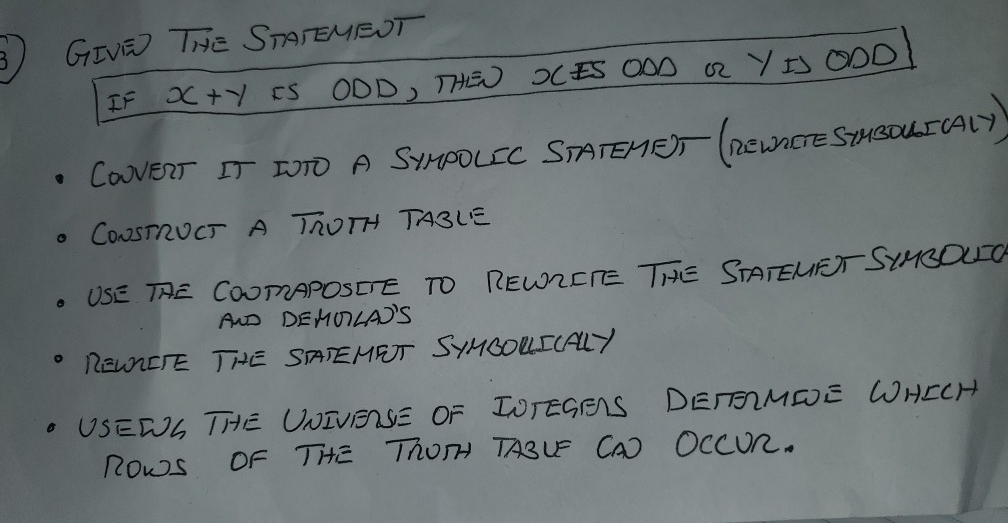 3) GIVEN THE STATEMENT
IF X+Y IS ODD, THEN X IS ODD OR Y IS ODD
• CONVERT IT INTO A SYMPOLIC STATEMENT (REWRITE SYMBOLLICALY)
• CONSTRUCT A TRUTH TABLE
• USE THE CONTRAPOSITE TO REWRITE THE STATEMENT SYMBOLIC
AND DEMORLAN'S
• REWRITE THE STATEMENT SYMBOLLICALLY
• USEING THE UNIVERSE OF INTEGERS DETERMINE WHICH
ROWS OF THE TRUTH TABLE CAN OCCUR.